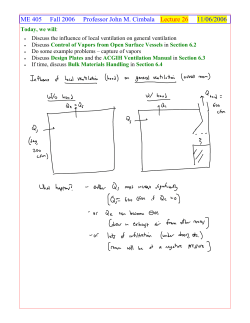 ME 405 Fall 2006 Professor John M. Cimbala Lecture 26 11/06/2006
Today, we will:
• Discuss the influence of local ventilation on general ventilation
• Discuss Control of Vapors from Open Surface Vessels in Section 6.2
• Do some example problems – capture of vapors
• Discuss Design Plates and the ACGIH Ventilation Manual in Section 6.3
• If time, discuss Bulk Materials Handling in Section 6.4
Influence of local ventilation (hood) on general ventilation
w/o hood w/ hood
Qe = Qs Qe
Qs Qs
200
cfm)
What happens? - either Qs must increase significantly
- or Qe can become
- or lots of infiltration (under doors, etc.)
[room will be at a negative pressure]